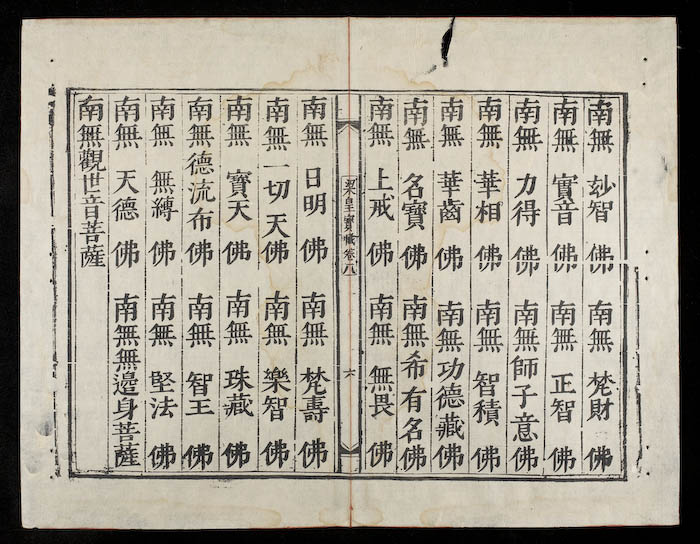 南無 玅智 佛 南無 梵財 佛
南無 寶音 佛 南無 正智 佛
南無 力得 佛 南無師子意佛
南無 華相 佛 南無 智積 佛
南無 華齒 佛 南無功德藏佛
南無 名寶 佛 南無希有名佛
南無 上戒 佛 南無 無畏 佛
梁皇寶懺卷八 六
南無 日明 佛 南無 梵壽 佛
南無一切天佛 南無 樂智 佛
南無 寶天 佛 南無 珠藏 佛
南無德流布佛 南無 智王 佛
南無 無縛 佛 南無 堅法 佛
南無 天德 佛 南無無邊身菩薩
南無觀世音菩薩